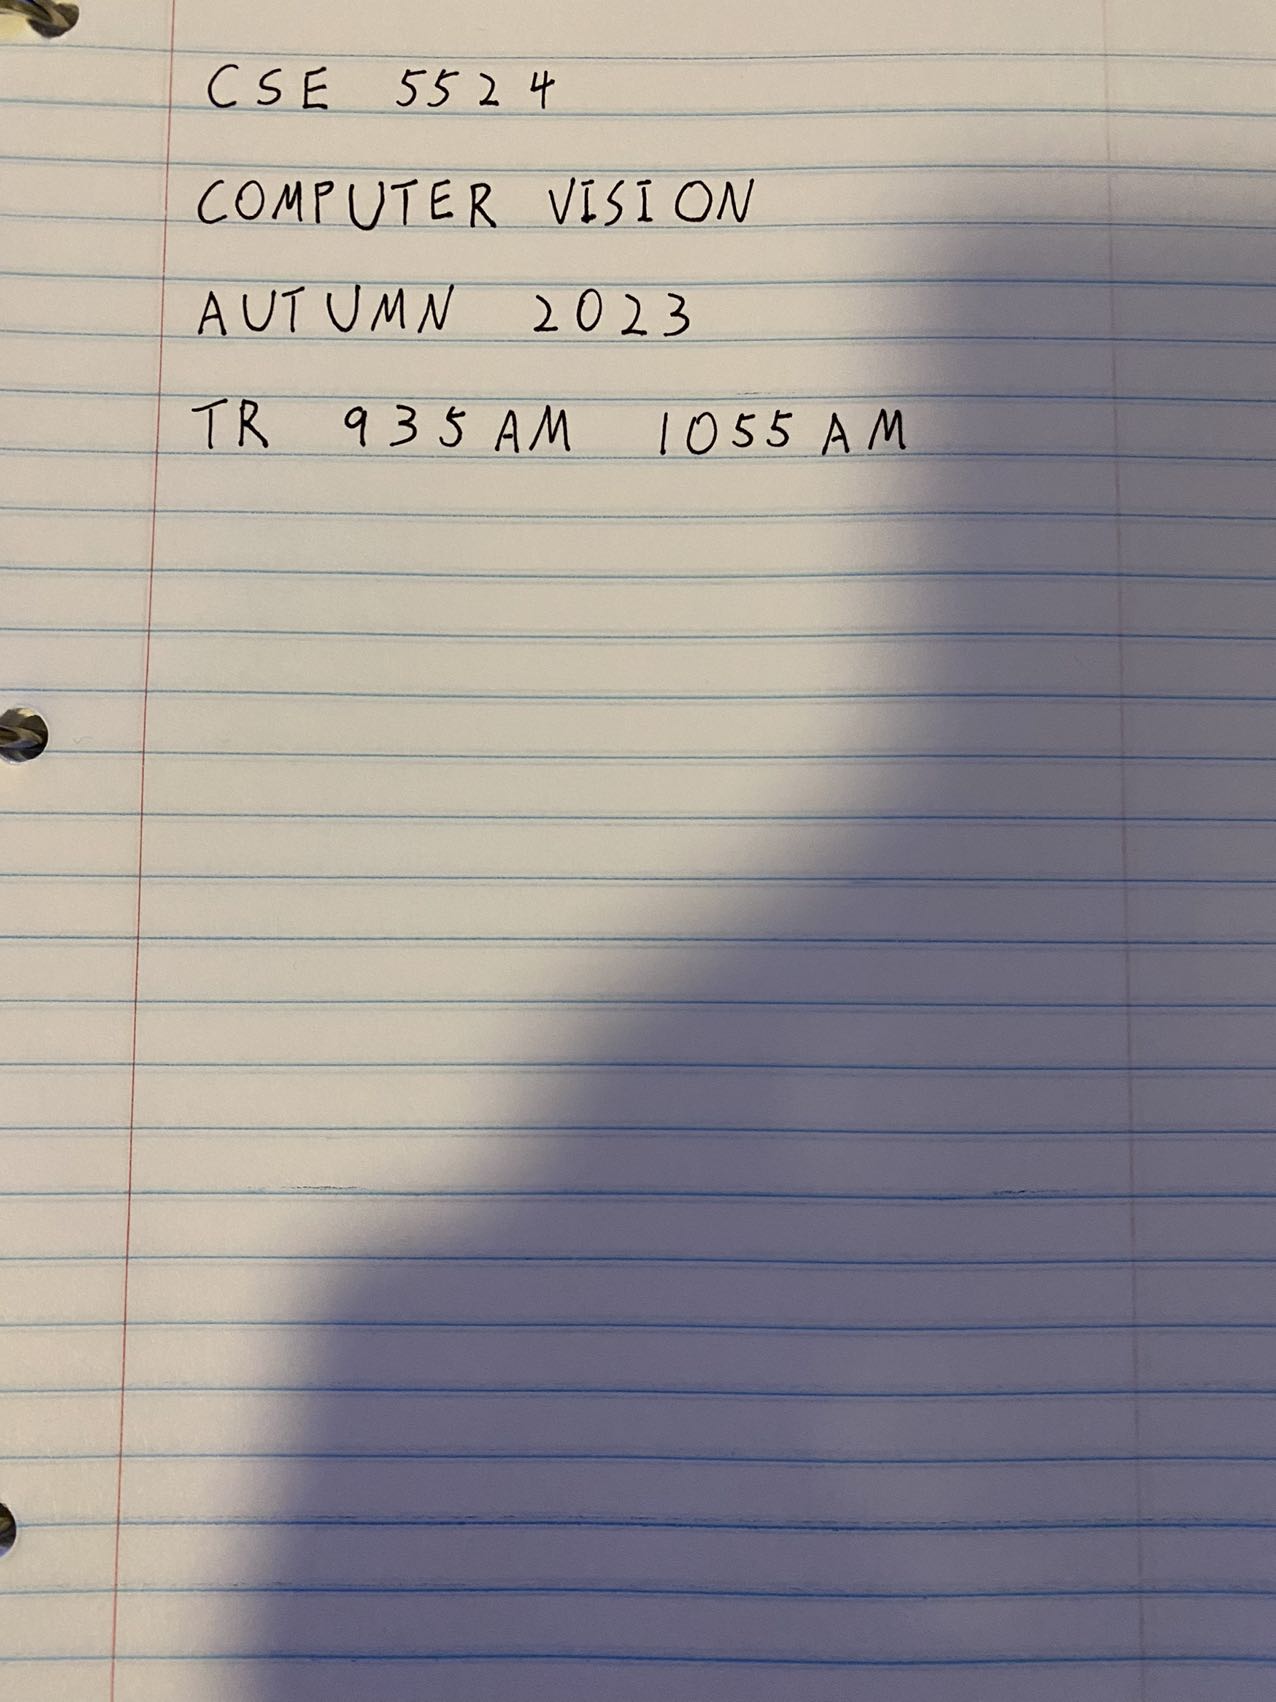 CSE 5524
COMPUTER VISION
AUTUMN 2023
TR 935AM 1055AM